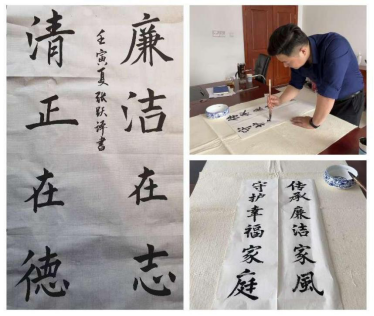 廉洁在志
清正在德
壬寅夏张跃书
传承廉洁家風
守护幸福家庭